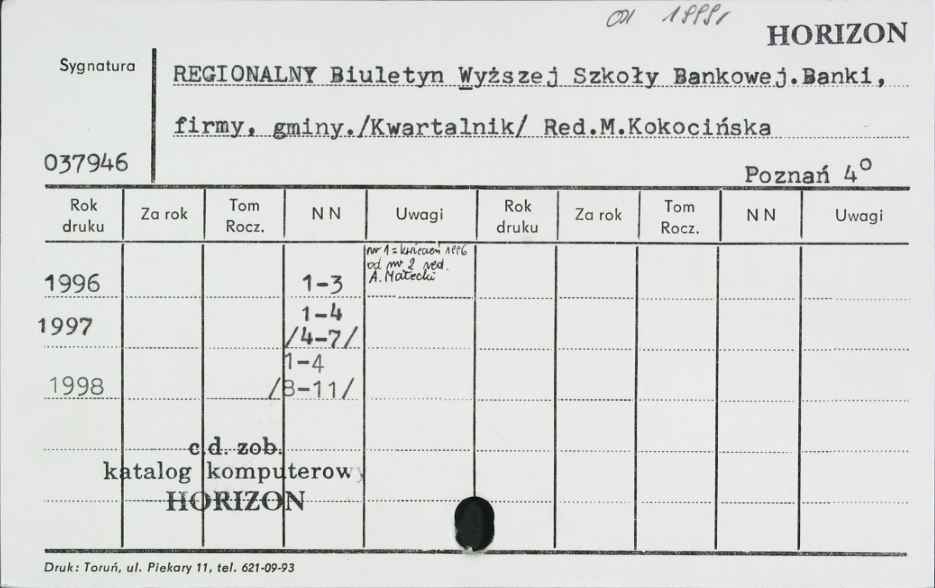 od 1999r
HORIZON
Sygnatura
REGIONALNY Biuletyn Wyższej Szkoły Bankowej.Banki,
firmy, gminy./Kwartalnik/ Red.M.Kokocińska
037946
Poznań 4º
Rok druku Za rok Tom Rocz. N N Uwagi Rok druku Za rok Tom Rocz. N N Uwagi
nr 1 = kwiecień 1996
od nr 2 red.
A. Małecki
1996 1-3
1997 1-4
/4-7/
1-4
1998 /8-11/
c.d. zob.
katalog komputerowy
HORIZON
Druk: Toruń, ul. Piekary 11, tel. 621-09-93